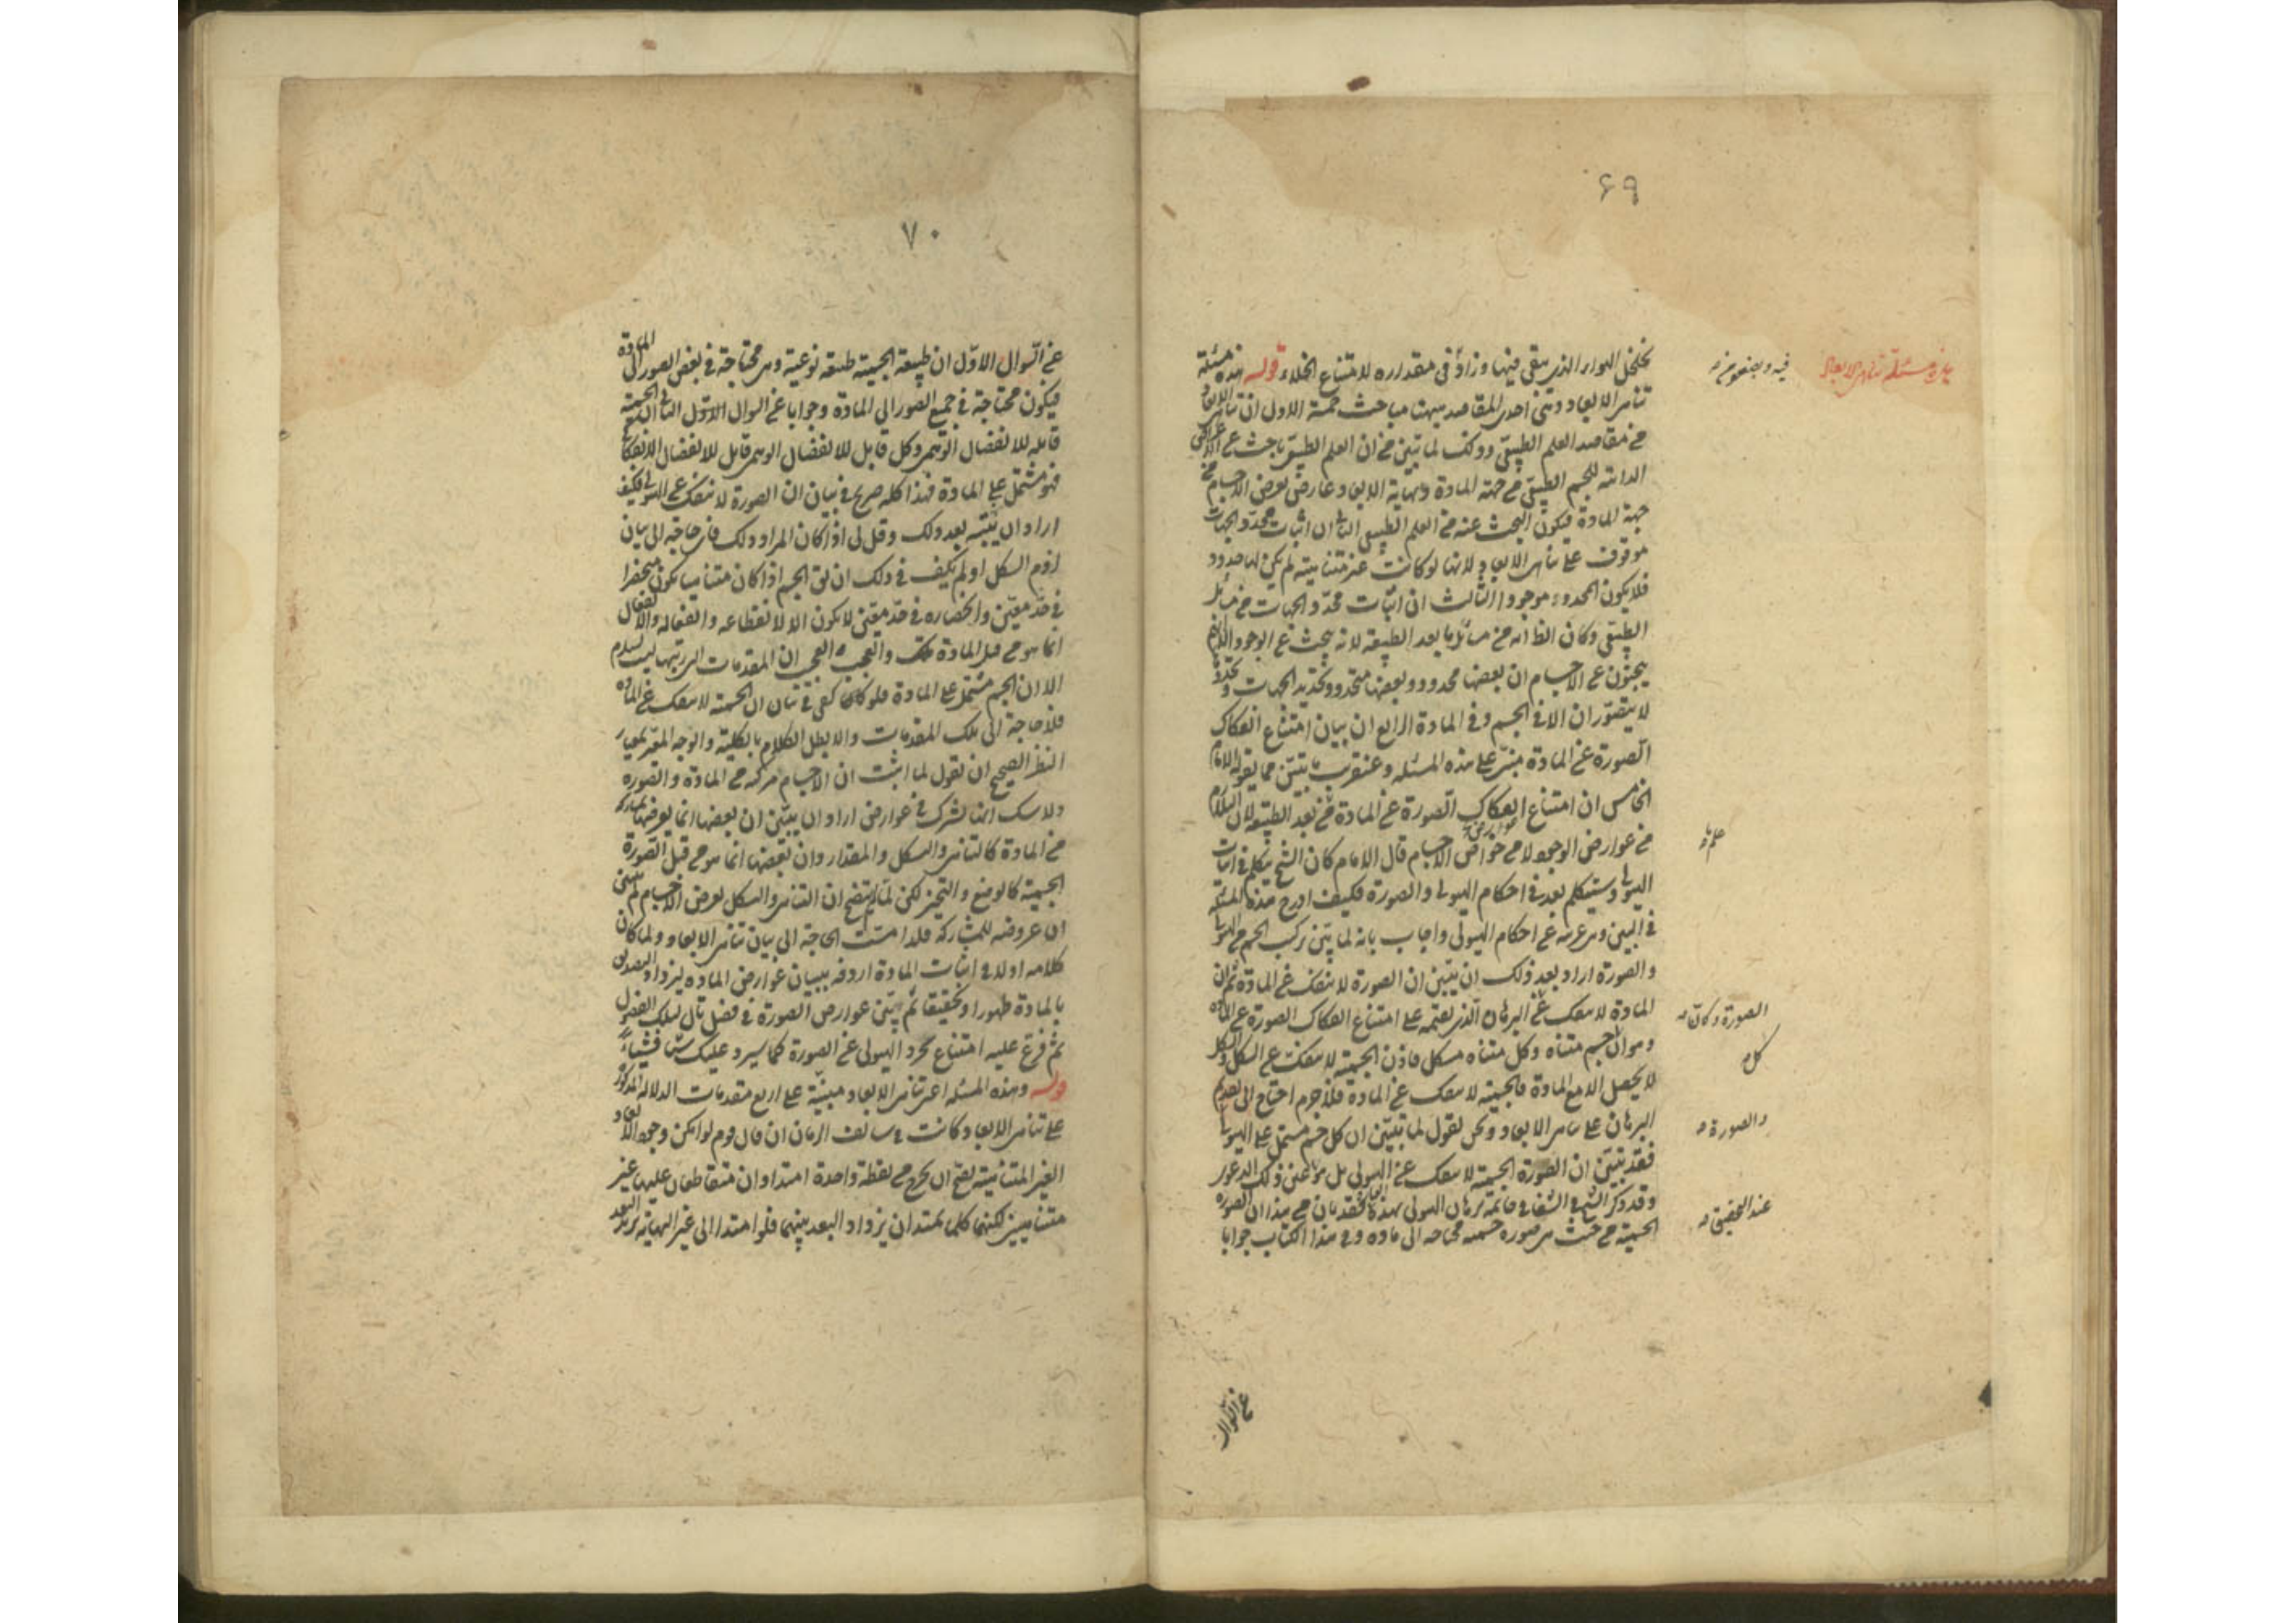 ۶۹
تخلخل الهواء الذي يبقى فيها وزاد في مقداره لامتناع الخلاء قوله هذه مسئلة
تناهي الابعاد وهي احدى المقاصد ههنا مباحث خمسة الاول ان تناهي الابعاد
من مقاصد العلم الطبيعي وذلك لما تبين من ان العلم الطبيعي باحث عن الاعراض
الذاتية للجسم الطبيعي من جهة المادة ونهاية الابعاد عارض يعرض الاجسام من
جهة المادة فيكون البحث عنه من العلم الطبيعي الثاني ان اثبات محدد الجهات
موقوف على تناهي الابعاد لانها لو كانت غير متناهية لم يكن لها حدود
فلا يكون المحدد موجودا الثالث ان اثبات محدد الجهات من مسائل
الطبيعي وكان الظ انه من مسائل ما بعد الطبيعة لانه يبحث عن الوجود
يبحثون عن الاجسام ان بعضها محدد وبعضها متحدد وتحديد الجهات وتحددها
لا يتصوران الا في الجسم وفي المادة الرابع ان بيان امتناع انفكاك
الصورة عن المادة مبني على هذه المسئلة وعنقريب ما يتبين مما يقوله الامام
الخامس ان امتناع انفكاك الصورة عن المادة من بعد الطبيعة لان
من عوارض الوجود لا من خواص الاجسام قال الامام كان الشيخ يتكلم في اثبات
الهيولى وسيتكلم بعد في احكام الهيولى والصورة فكيف ادرج هذه المسئلة
في البين وهي غريبة عن احكام الهيولى واجاب بانه لما بين تركب الجسم من الهيولى
والصورة اراد بعد ذلك ان يبين ان الصورة لا تنفك عن المادة ثم ان
المادة لا تنفك عن البرهان الذي يقيمه على امتناع انفكاك الصورة عن المادة
وهو ان الجسم متناه وكل متناه مشكل فاذن الجسمية لا تنفك عن الشكل والشكل
لا يحصل الا مع المادة فالجسمية لا تنفك عن المادة فلا جرم احتاج الى تقديم
البرهان على تناهي الابعاد ونحن نقول لما تبين ان كل جسم مشتمل على الهيولى
فقد تبين ان الصورة الجسمية لا تنفك عن الهيولى بل هو عين ذلك الدعوى
وقد ذكر الشيخ في الشفاء في خاتمة برهان الهيولى بهذا فقد بان من هذا ان الصورة
الجسمية من حيث هي صورة جسمية محتاجة الى مادة وفي هذا الكتاب جوابا
فيه
الصورة وكان
كل
والصورة
عند التحقيق
عن السؤال
۷۰
عن السؤال الاول ان طبيعة الجسمية طبيعة نوعية وهي محتاجة في بعض الصور الى المادة
فيكون محتاجة في جميع الصور الى المادة وجوابا عن السؤال الاول الثاني ان الجسمية
قابلة للانفصال الوهمي وكل قابل للانفصال الوهمي قابل للانفصال الانفكاكي
فهو مشتمل على المادة فهذا كله صريح في بيان ان الصورة لا تنفك عن الهيولى فكيف
اراد ان يبينه بعد ذلك وقل لي اذا كان المراد ذلك فاي حاجة الى بيان
لزوم الشكل او لم يكف في ذلك ان يق الجسم اذا كان متناهيا يكون منحصرا
في حد معين وانحصاره في حد معين لا يكون الا لانقطاعه وانفعاله والانفعال
انما هو من قبل المادة والعجب العجب ان المقدمات التي رتبها ليست تستلزم
الا ان الجسم مشتمل على المادة فلو كان كفى في بيان ان الجسمية لا تنفك عن المادة
فلا حاجة الى تلك المقدمات والا بطل الكلام بالكلية والوجه المعير بمعيار
النظر الصحيح ان نقول لما اثبت ان الاجسام مركبة من المادة والصورة
ولا شك انها تشترك في عوارض اراد ان يبين ان بعضها انما يعرضها بمشاركة
من المادة كالتناهي والشكل والمقدار وان بعضها انما هو من قبل الصورة
الجسمية كالوضع والتحيز لكن لما لم يتضح ان التناهي والشكل يعرض الاجسام لم يتبين
ان عروضه للمشاركة فلذا مست الحاجة الى بيان تناهي الابعاد ولما كان
كلامه اولا في اثبات المادة اردفه ببيان عوارض المادة ليزداد التصديق
بالمادة ظهورا وتحقيقا ثم يبين عوارض الصورة في فصل تال لتلك الفصول
ثم فرع عليه امتناع تجرد الهيولى عن الصورة كما سيرد عليك شيئا فشيئا
قوله وهذه المسئلة اعني تناهي الابعاد مبنية على اربع مقدمات الدلالة المذكورة
على تناهي الابعاد كانت في سالف الزمان ان قال قوم لو امكن وجود الابعاد
الغير المتناهية يصح ان يخرج من نقطة واحدة امتدادان متقاطعان عليها غير
متناهيين لكنهما كلما يمتدان يزداد البعد بينهما فلو امتدا الى غير النهاية يزيد البعد